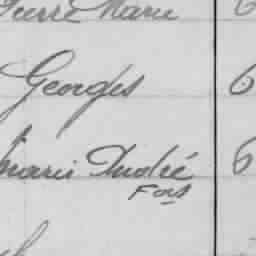 Pierre Marie 6
Georges 6
Marie André 6
Fors